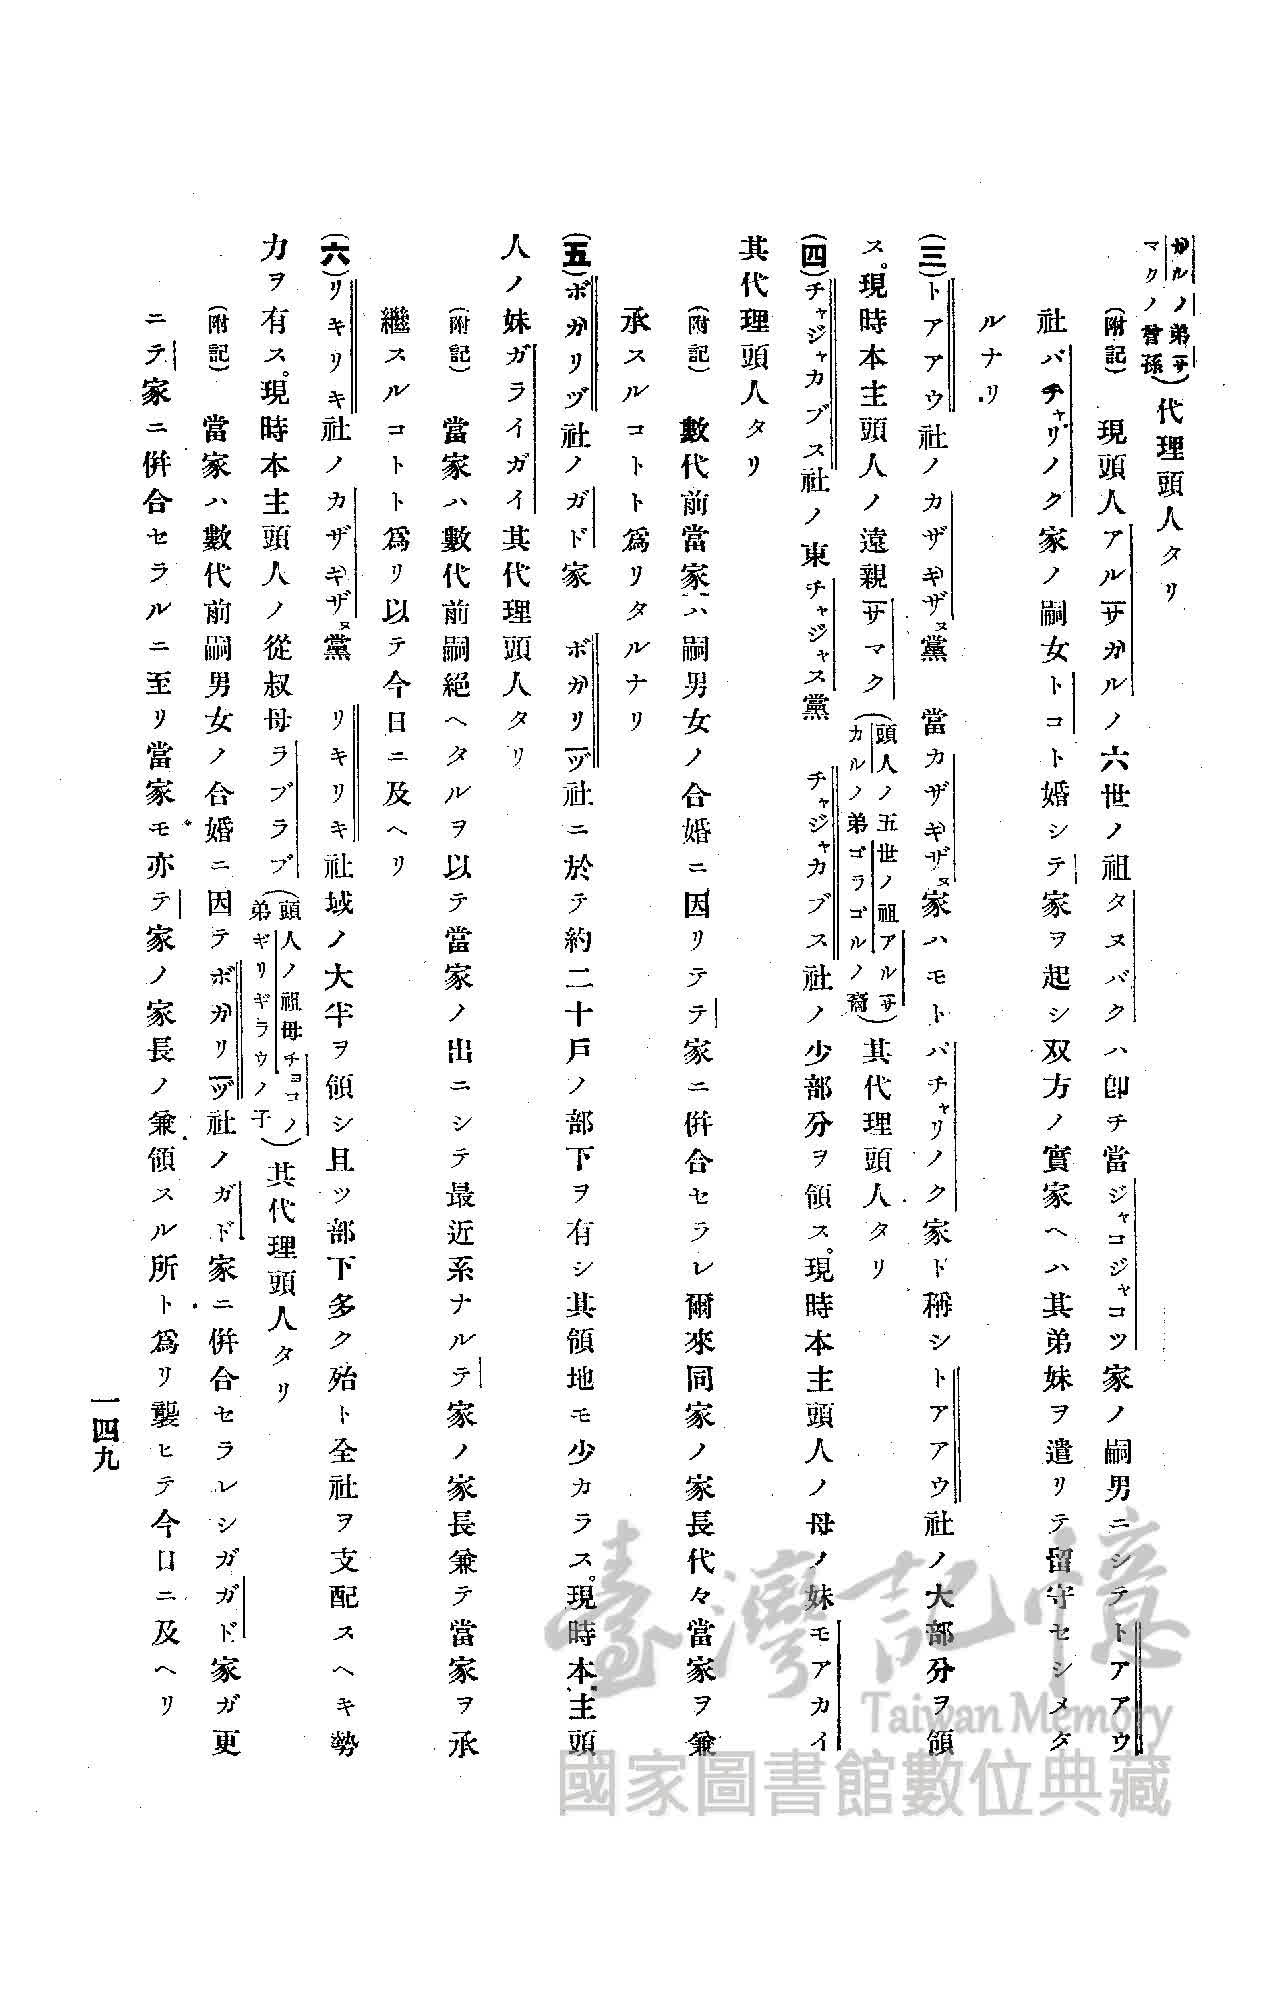 ガルノ弟サマクノ曾孫)代理頭人タリ
(附記) 現頭人アルサガルノ六世ノ祖タヌバクハ卽チ當ジャコジャコツ家ノ嗣男ニシテトアアウ
社パチャリノク家ノ嗣女トコト婚シテ家ヲ起シ双方ノ實家ヘハ其弟妹ヲ遣リテ留守セシメタ
ルナリ
(三)トアアウ社ノカザギザヌ黨 當カザギザヌ家ハモトパチャリノク家ト稱シトアアウ社ノ大部分ヲ領
ス。現時本主頭人ノ遠親サマク(頭人ノ五世ノ祖アルサガルノ弟ゴラゴルノ裔)其代理頭人タリ
(四)チャジャカブス社ノ東チャジャス黨 チャジャカブス社ノ少部分ヲ領ス。現時本主頭人ノ母ノ妹モアカイ
其代理頭人タリ
(附記) 數代前當家ハ嗣男女ノ合婚ニ因リテテ家ニ併合セラレ爾來同家ノ家長代々當家ヲ兼
承スルコトト爲リタルナリ
(五)ボガリヅ社ノガド家 ボガリヅ社ニ於テ約二十戶ノ部下ヲ有シ其領地モ少カラス。現時本主頭
人ノ妹ガライガイ其代理頭人タリ
(附記) 當家ハ數代前嗣絕ヘタルヲ以テ當家ノ出ニシテ最近系ナルテ家ノ家長兼テ當家ヲ承
繼スルコトト爲リ以テ今日ニ及ヘリ
(六)リキリキ社ノカザギザヌ黨 リキリキ社域ノ大半ヲ領シ且ツ部下多ク殆ト全社ヲ支配スヘキ勢
力ヲ有ス。現時本主頭人ノ從叔母ラブラブ(頭人ノ祖母チョコノ弟ギリギラウノ子)其代理頭人タリ
(附記) 當家ハ數代前嗣男女ノ合婚ニ因テボガリヅ社ノガド家ニ併合セラレシガガド家ガ更
ニテ家ニ併合セラルニ至リ當家モ亦テ家ノ家長ノ兼領スル所ト爲リ襲ヒテ今日ニ及ヘリ
一四九
臺灣記憶
Taiwan Memory
國家圖書館數位典藏